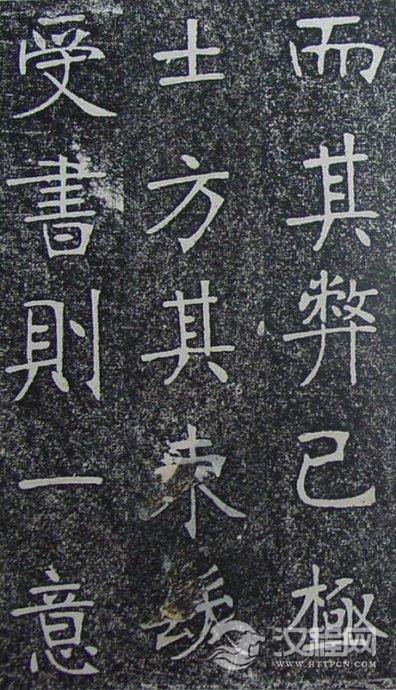 而其弊已極
士方其束髮
受書則一意
汉程网
WWW.HTTPCN.COM